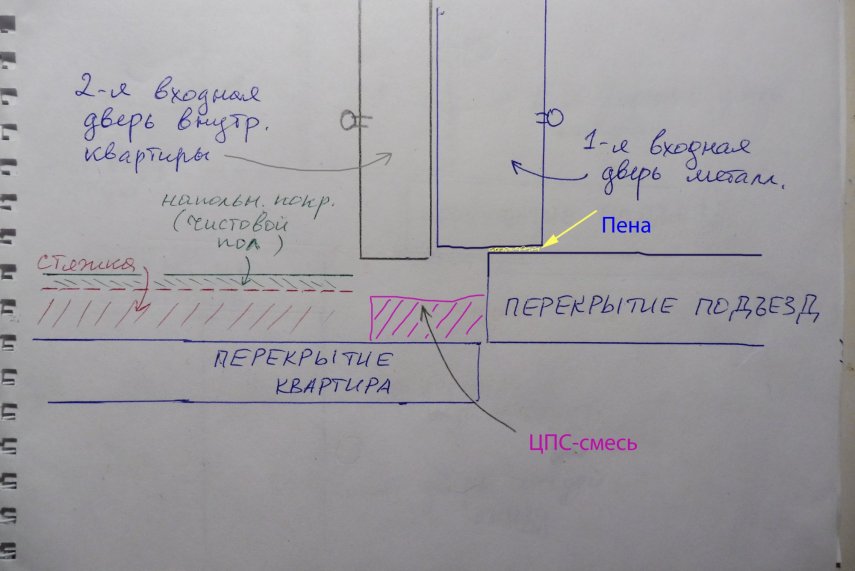 2-я входная
дверь внутр.
квартиры
1-я входная
дверь металл.
Пена
напольн. покр.
(чистовой
пол)
стяжка
ПЕРЕКРЫТИЕ ПОДЪЕЗД
ПЕРЕКРЫТИЕ
КВАРТИРА
ЦПС-смесь